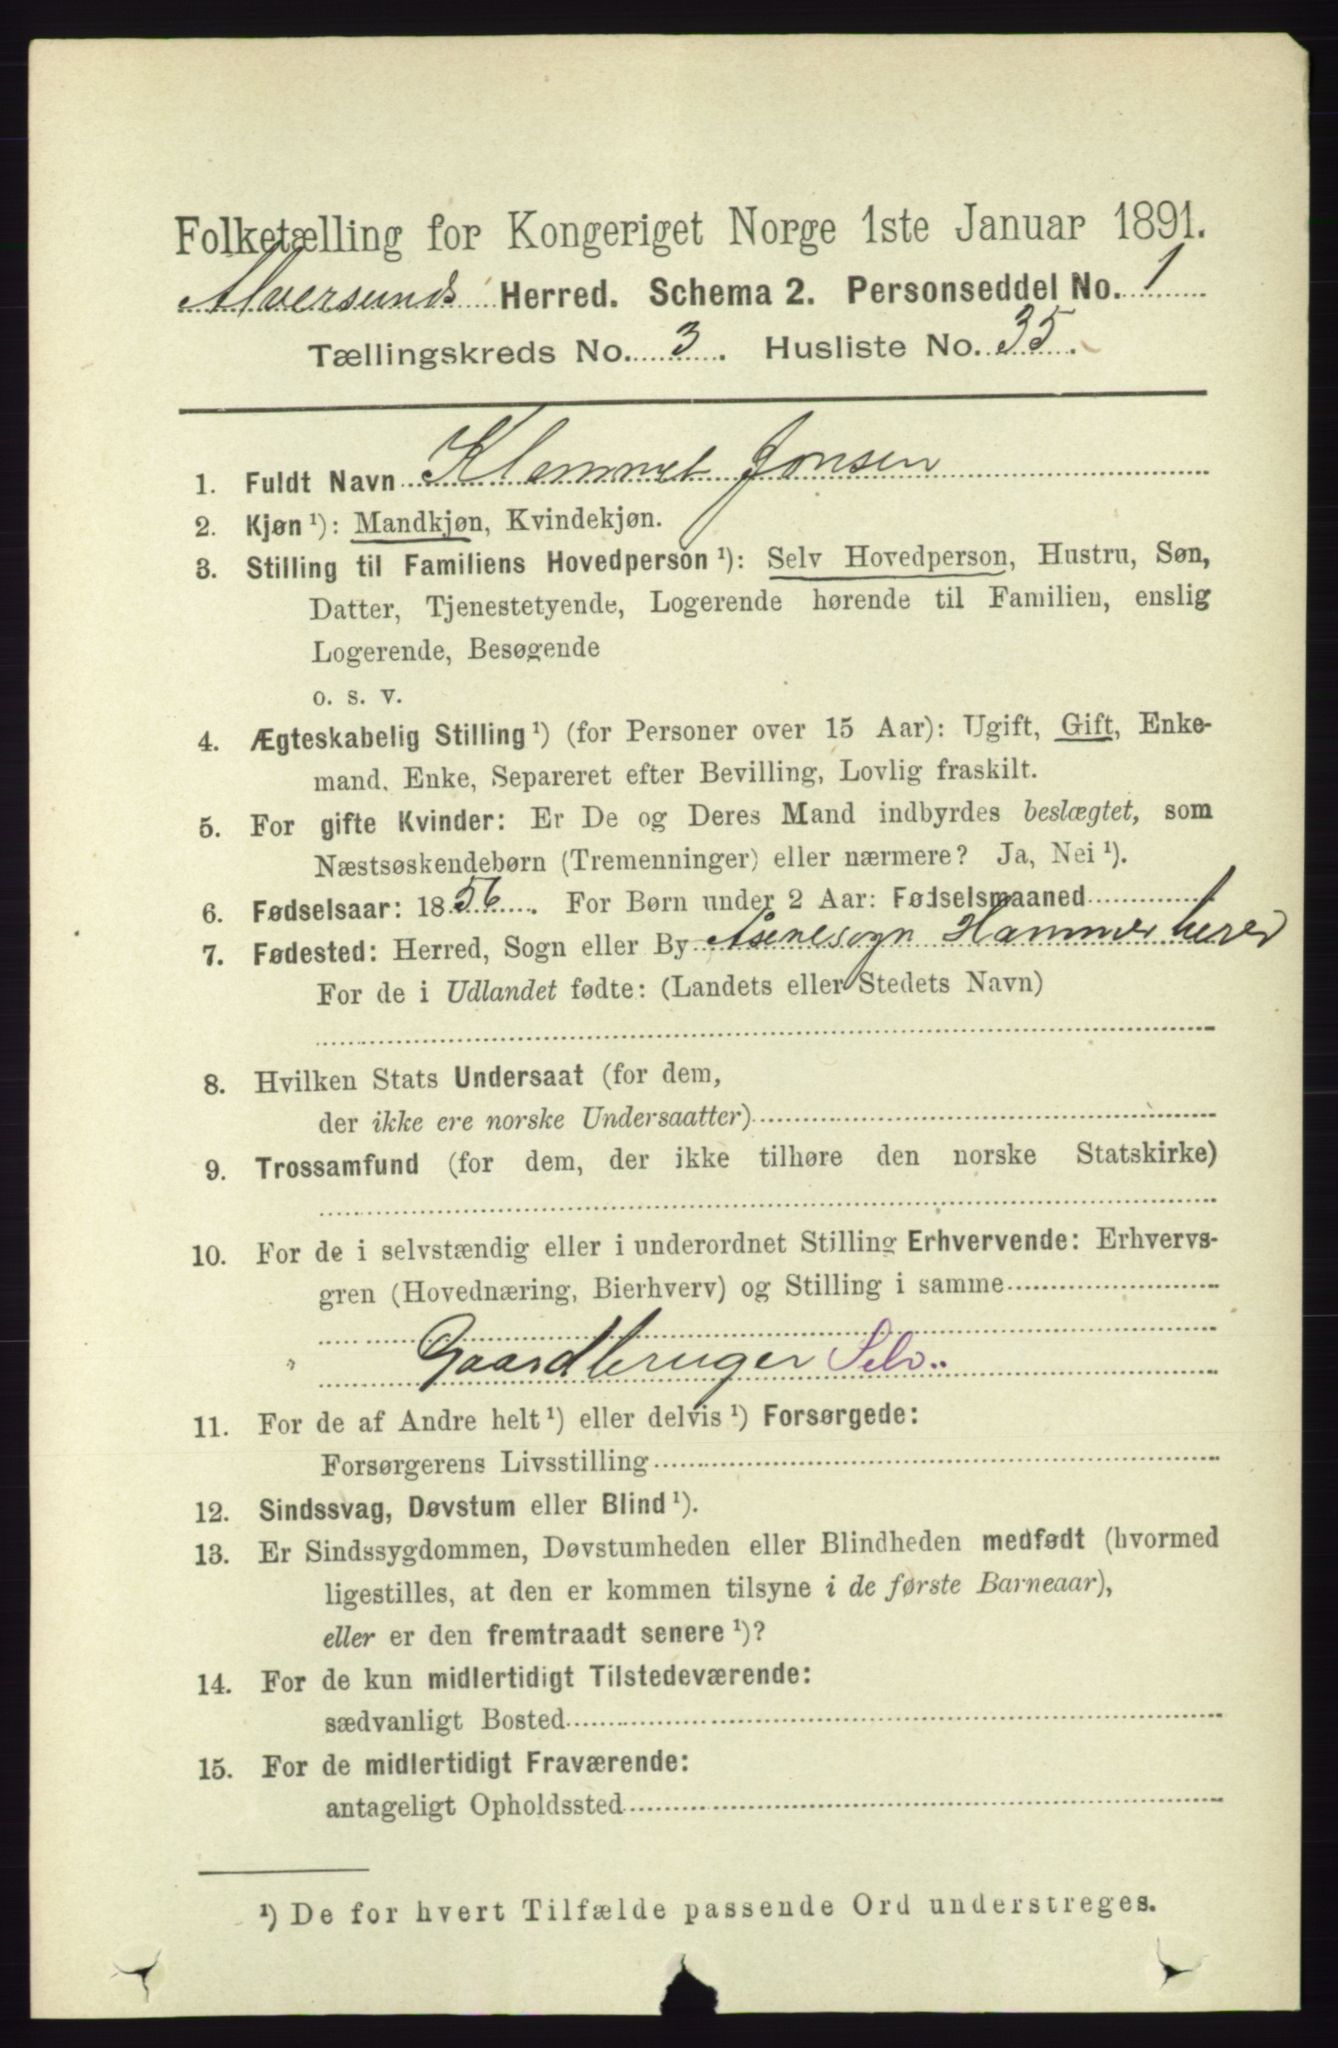 Folketælling for Kongeriget Norge 1ste Januar 1891.
Alversunds Herred. Schema 2. Personseddel No. 1
Tællingskreds No. 3. Husliste No. 35.
1. Fuldt Navn Klemmet Jonsen
2. Kjøn ¹): Mandkjøn, Kvindekjøn.
3. Stilling til Familiens Hovedperson ¹): Selv Hovedperson, Hustru, Søn,
Datter, Tjenestetyende, Logerende hørende til Familien, enslig
Logerende, Besøgende
o. s. v.
4. Ægteskabelig Stilling ¹) (for Personer over 15 Aar): Ugift, Gift, Enke-
mand, Enke, Separeret efter Bevilling, Lovlig fraskilt.
5. For gifte Kvinder: Er De og Deres Mand indbyrdes beslægtet, som
Næstsøskendebørn (Tremenninger) eller nærmere? Ja, Nei ¹).
6. Fødselsaar: 1856. For Børn under 2 Aar: Fødselsmaaned
7. Fødested: Herred, Sogn eller By Åsenesogn Hammer herred
For de i Udlandet fødte: (Landets eller Stedets Navn)
8. Hvilken Stats Undersaat (for dem,
der ikke ere norske Undersaatter)
9. Trossamfund (for dem, der ikke tilhøre den norske Statskirke)
10. For de i selvstændig eller i underordnet Stilling Erhvervende: Erhvervs-
gren (Hovednæring, Bierhverv) og Stilling i samme
Gaardbruger Selv..
11. For de af Andre helt ¹) eller delvis ¹) Forsørgede:
Forsørgerens Livsstilling
12. Sindssvag, Døvstum eller Blind ¹).
13. Er Sindssygdommen, Døvstumheden eller Blindheden medfødt (hvormed
ligestilles, at den er kommen tilsyne i de første Barneaar),
eller er den fremtraadt senere ¹)?
14. For de kun midlertidigt Tilstedeværende:
sædvanligt Bosted
15. For de midlertidigt Fraværende:
antageligt Opholdssted
¹) De for hvert Tilfælde passende Ord understreges.